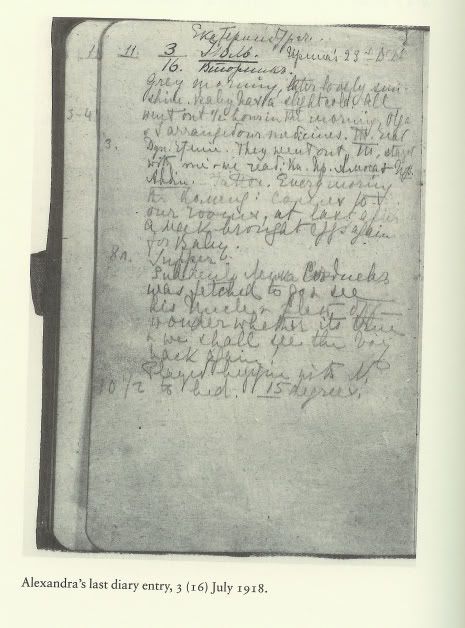 Екатеринбург.
11. 3 Іюль. Irina's 23rd B.D.
16. Вторникъ.
Grey morning, later lovely sun-
shine. Baby has a slight cold. All
3-4 went out ½ hour in the morning, Olga
& I arranged our medicines. T. read
3. They went out, T. stayed
with me & we read: Am.
Every morning
the comes to
our rooms, at last after
a week brought eggs again
for Baby.
8h. Supper.
Suddenly
was fetched to go & see
his uncle & flew off
wonder whether its true
& we shall see the boy
back again!
Played bezique with N.
10 1/2 to bed. 15 degrees.
Alexandra's last diary entry, 3 (16) July 1918.